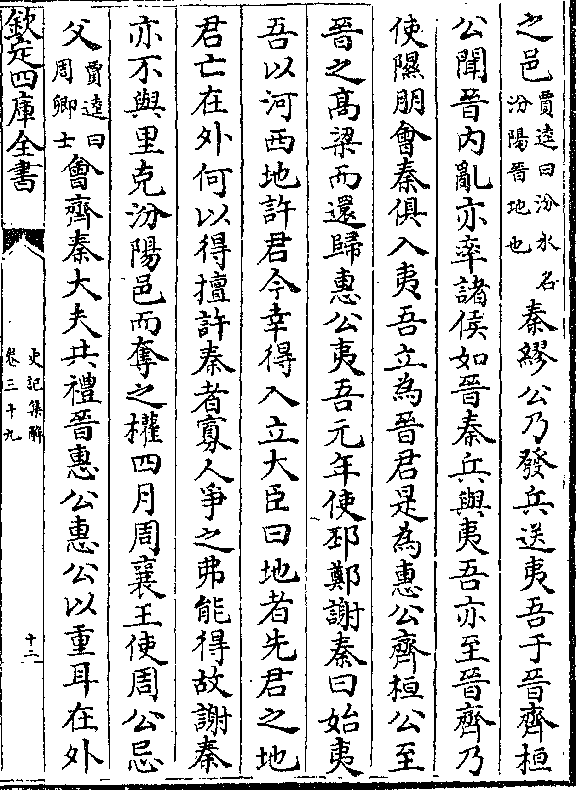 之邑賈逵曰汾水名汾陽晉地也秦繆公乃發兵送夷吾于晉齊桓
公聞晉內亂亦率諸侯如晉秦兵與夷吾亦至晉齊乃
使隰朋會秦俱入夷吾立為晉君是為惠公齊桓公至
晉之髙梁而還歸惠公夷吾元年使邳鄭謝秦曰始夷
吾以河西地許君今幸得入立大臣曰地者先君之地
君亡在外何以得擅許秦者寡人爭之弗能得故謝秦
亦不與里克汾陽邑而奪之權四月周襄王使周公忌
父賈逵曰周卿士會齊秦大夫共禮晉惠公惠公以重耳在外
欽定四庫全書
史記集解
卷三十九
十二